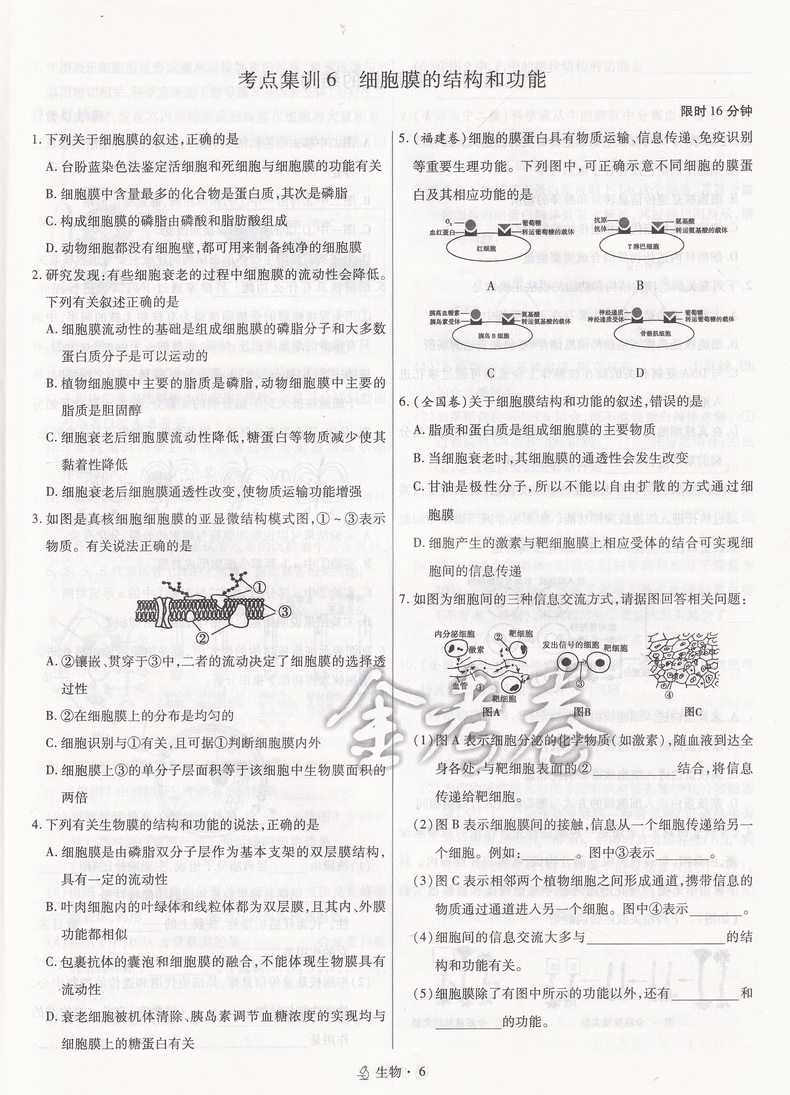 考点集训6 细胞膜的结构和功能
限时16分钟
1. 下列关于细胞膜的叙述,正确的是
A. 台盼蓝染色法鉴定活细胞和死细胞与细胞膜的功能有关
B. 细胞膜中含量最多的化合物是蛋白质,其次是磷脂
C. 构成细胞膜的磷脂由磷酸和脂肪酸组成
D. 动物细胞都没有细胞壁,都可用来制备纯净的细胞膜
2. 研究发现:有些细胞衰老的过程中细胞膜的流动性会降低。
下列有关叙述正确的是
A. 细胞膜流动性的基础是组成细胞膜的磷脂分子和大多数
蛋白质分子是可以运动的
B. 植物细胞膜中主要的脂质是磷脂,动物细胞膜中主要的
脂质是胆固醇
C. 细胞衰老后细胞膜流动性降低,糖蛋白等物质减少使其
黏着性降低
D. 细胞衰老后细胞膜通透性改变,使物质运输功能增强
3. 如图是真核细胞细胞膜的亚显微结构模式图,①~③表示
物质。有关说法正确的是
①
③
②
A. ②镶嵌、贯穿于③中,二者的流动决定了细胞膜的选择透
过性
B. ②在细胞膜上的分布是均匀的
C. 细胞识别与①有关,且可据①判断细胞膜内外
D. 细胞膜上③的单分子层面积等于该细胞中生物膜面积的
两倍
4. 下列有关生物膜的结构和功能的说法,正确的是
A. 细胞膜是由磷脂双分子层作为基本支架的双层膜结构,
具有一定的流动性
B. 叶肉细胞内的叶绿体和线粒体都为双层膜,且其内、外膜
功能都相似
C. 包裹抗体的囊泡和细胞膜的融合,不能体现生物膜具有
流动性
D. 衰老细胞被机体清除、胰岛素调节血糖浓度的实现均与
细胞膜上的糖蛋白有关
5. (福建卷)细胞的膜蛋白具有物质运输、信息传递、免疫识别
等重要生理功能。下列图中,可正确示意不同细胞的膜蛋
白及其相应功能的是
O₂ 葡萄糖
血红蛋白 转运葡萄糖的载体
红细胞
A
抗原 氨基酸
抗体 转运氨基酸的载体
T淋巴细胞
B
胰高血糖素 氨基酸
胰岛素受体 转运氨基酸的载体
胰岛B细胞
C
神经递质 葡萄糖
神经递质受体 转运葡萄糖的载体
骨骼肌细胞
D
6. (全国卷)关于细胞膜结构和功能的叙述,错误的是
A. 脂质和蛋白质是组成细胞膜的主要物质
B. 当细胞衰老时,其细胞膜的通透性会发生改变
C. 甘油是极性分子,所以不能以自由扩散的方式通过细
胞膜
D. 细胞产生的激素与靶细胞膜上相应受体的结合可实现细
胞间的信息传递
7. 如图为细胞间的三种信息交流方式,请据图回答相关问题:
内分泌细胞 ② 靶细胞
激素
血管 ① 靶细胞
图A
发出信号的细胞 靶细胞
③
图B
④
图C
(1)图A表示细胞分泌的化学物质(如激素),随血液到达全
身各处,与靶细胞表面的②____________结合,将信息
传递给靶细胞。
(2)图B表示细胞膜间的接触,信息从一个细胞传递给另一
个细胞。例如:________。图中③表示________。
(3)图C表示相邻两个植物细胞之间形成通道,携带信息的
物质通过通道进入另一个细胞。图中④表示________。
(4)细胞间的信息交流大多与____________________的结
构和功能有关。
(5)细胞膜除了有图中所示的功能以外,还有__________和
__________的功能。
金考卷
生物·6